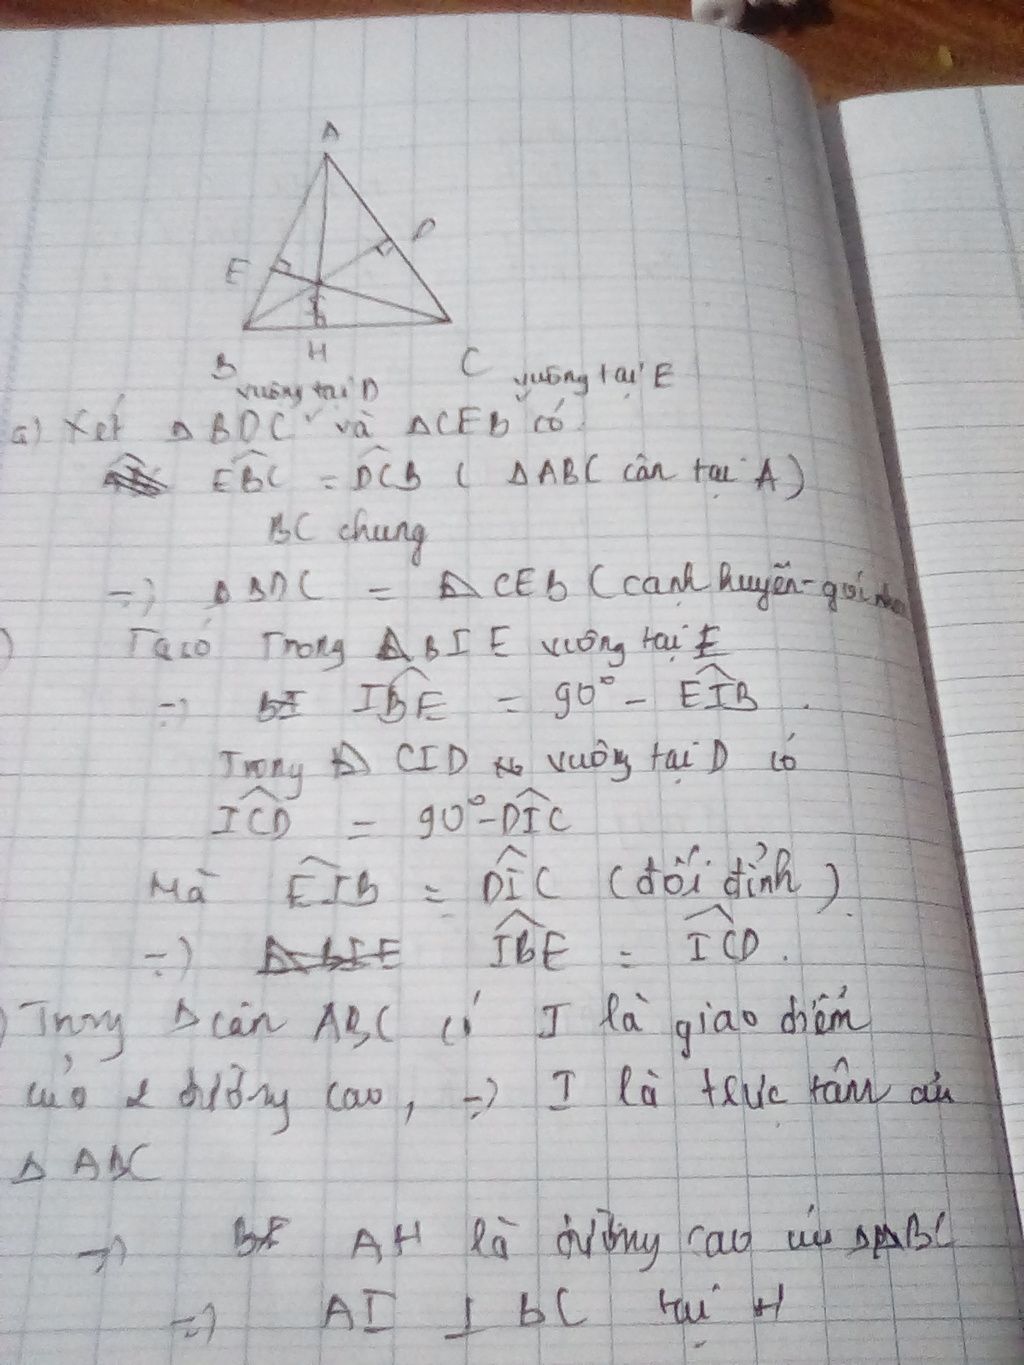 A
D
E
I
B
H
C
vuông tại D
vuông tại E
a) Xét Δ BDC và ΔCEB có
EBC = DCB ( ΔABC cân tại A)
BC chung
=> ΔBDC = ΔCEB (cạnh huyền-góc
) Ta có Trong ΔBIE vuông tại E
=> IBE = 90° - EIB .
Trong Δ CID vuông tại D có
ICD = 90° - DIC
Mà EIB = DIC (đối đỉnh)
=> IBE = ICD.
) Trong Δ cân ABC có I là giao điểm
của 2 đường cao, => I là trực tâm của
Δ ABC
=> AH là đường cao của ΔABC
=> AI ⊥ BC tại H